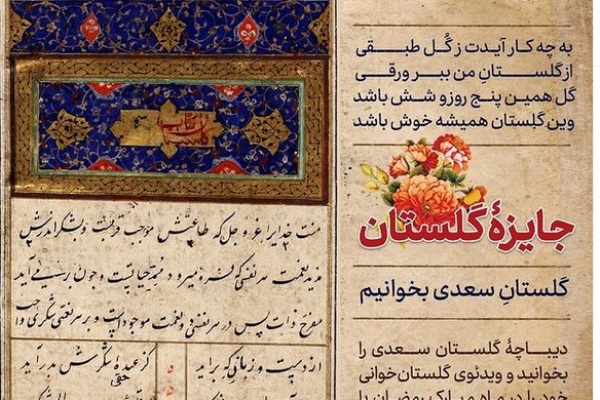 به چه کار آیدت ز گُل طبقی
از گلستانِ من ببر ورقی
گل همین پنج روز و شش باشد
وین گلستان همیشه خوش باشد
جایزهٔ گلستان
گلستانِ سعدی بخوانیم
دیباچهٔ گلستان سعدی را
بخوانید و ویدئوی گلستان‌خوانی
خود را در ماه مبارک رمضان با
کتاب گلستان
منت خدایرا عز و جل که طاعتش موجب قربتست و بشکر اندرش
مزید نعمت هر نفسی که فرو میرود ممد حیاتست و چون بر می آید
مفرح ذات پس در هر نفسی دو نعمت موجود است و بر هر نعمتی شکری واجب
از دست و زبان که برآید
کز عهدهٔ شکرش بدر آید